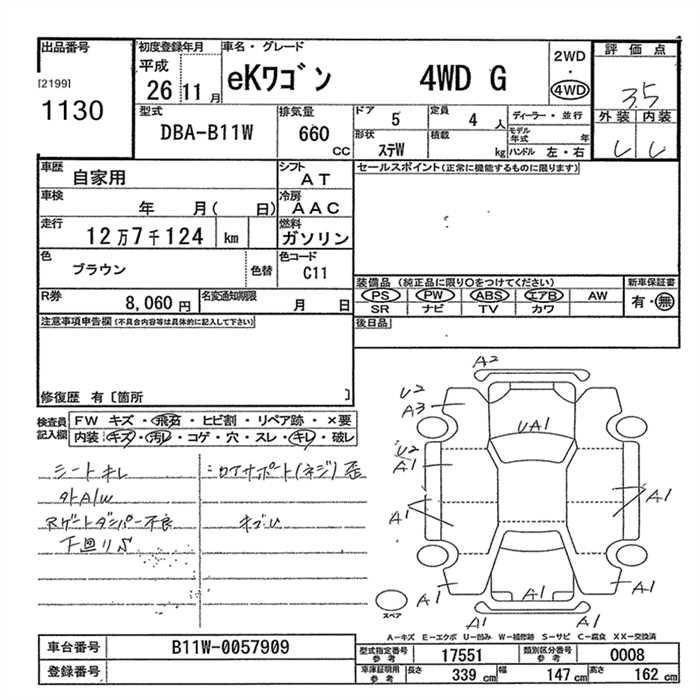 出品番号
[2199]
1130
初度登録年月
平成
26 11 月
車名・グレード
eKワゴン 4WD G
2WD
・
4WD
評価点
3.5
外装 内装
型式
DBA-B11W
排気量
660 CC
ドア 5
定員 4 人
形状 ステW
積載 kg
ディーラー・並行
モデル年式 年
ハンドル 左・右
車歴
自家用
シフト
AT
セールスポイント(正常に機能するものに限ります)
車検
年 月( 日)
冷房
AAC
走行
12万7千124 km
燃料
ガソリン
色
ブラウン
色替
色コード
C11
装備品 (純正品に限り○をつけてください)
PS PW ABS エアB AW
SR ナビ TV カワ
新車保証書
有・無
R券
8,060 円
名変通知期限
月 日
後日品
注意事項申告欄(不具合内容等は具体的に記入して下さい)
修復歴 有〔箇所 〕
検査員記入欄
FW キズ・飛石・ヒビ割・リペア跡・×要
内装:キズ・汚レ・コゲ・穴・スレ・キレ・破レ
シートキレ
外A/W
Rゲートダンパー不良
下回りS
コアサポート(ネジ)歪
キズU
A2
U2
A3
UA1
U2
A1
A1
A1
A1
A1
A1
スペア
A−キズ E−エクボ U−凹み W−補修跡 S−サビ C−腐食 XX−交換済
車台番号 B11W-0057909
登録番号
型式指定番号 参考 17551
類別区分番号 参考 0008
車庫証明用 参考 長さ 339 cm 幅 147 cm 高さ 162 cm